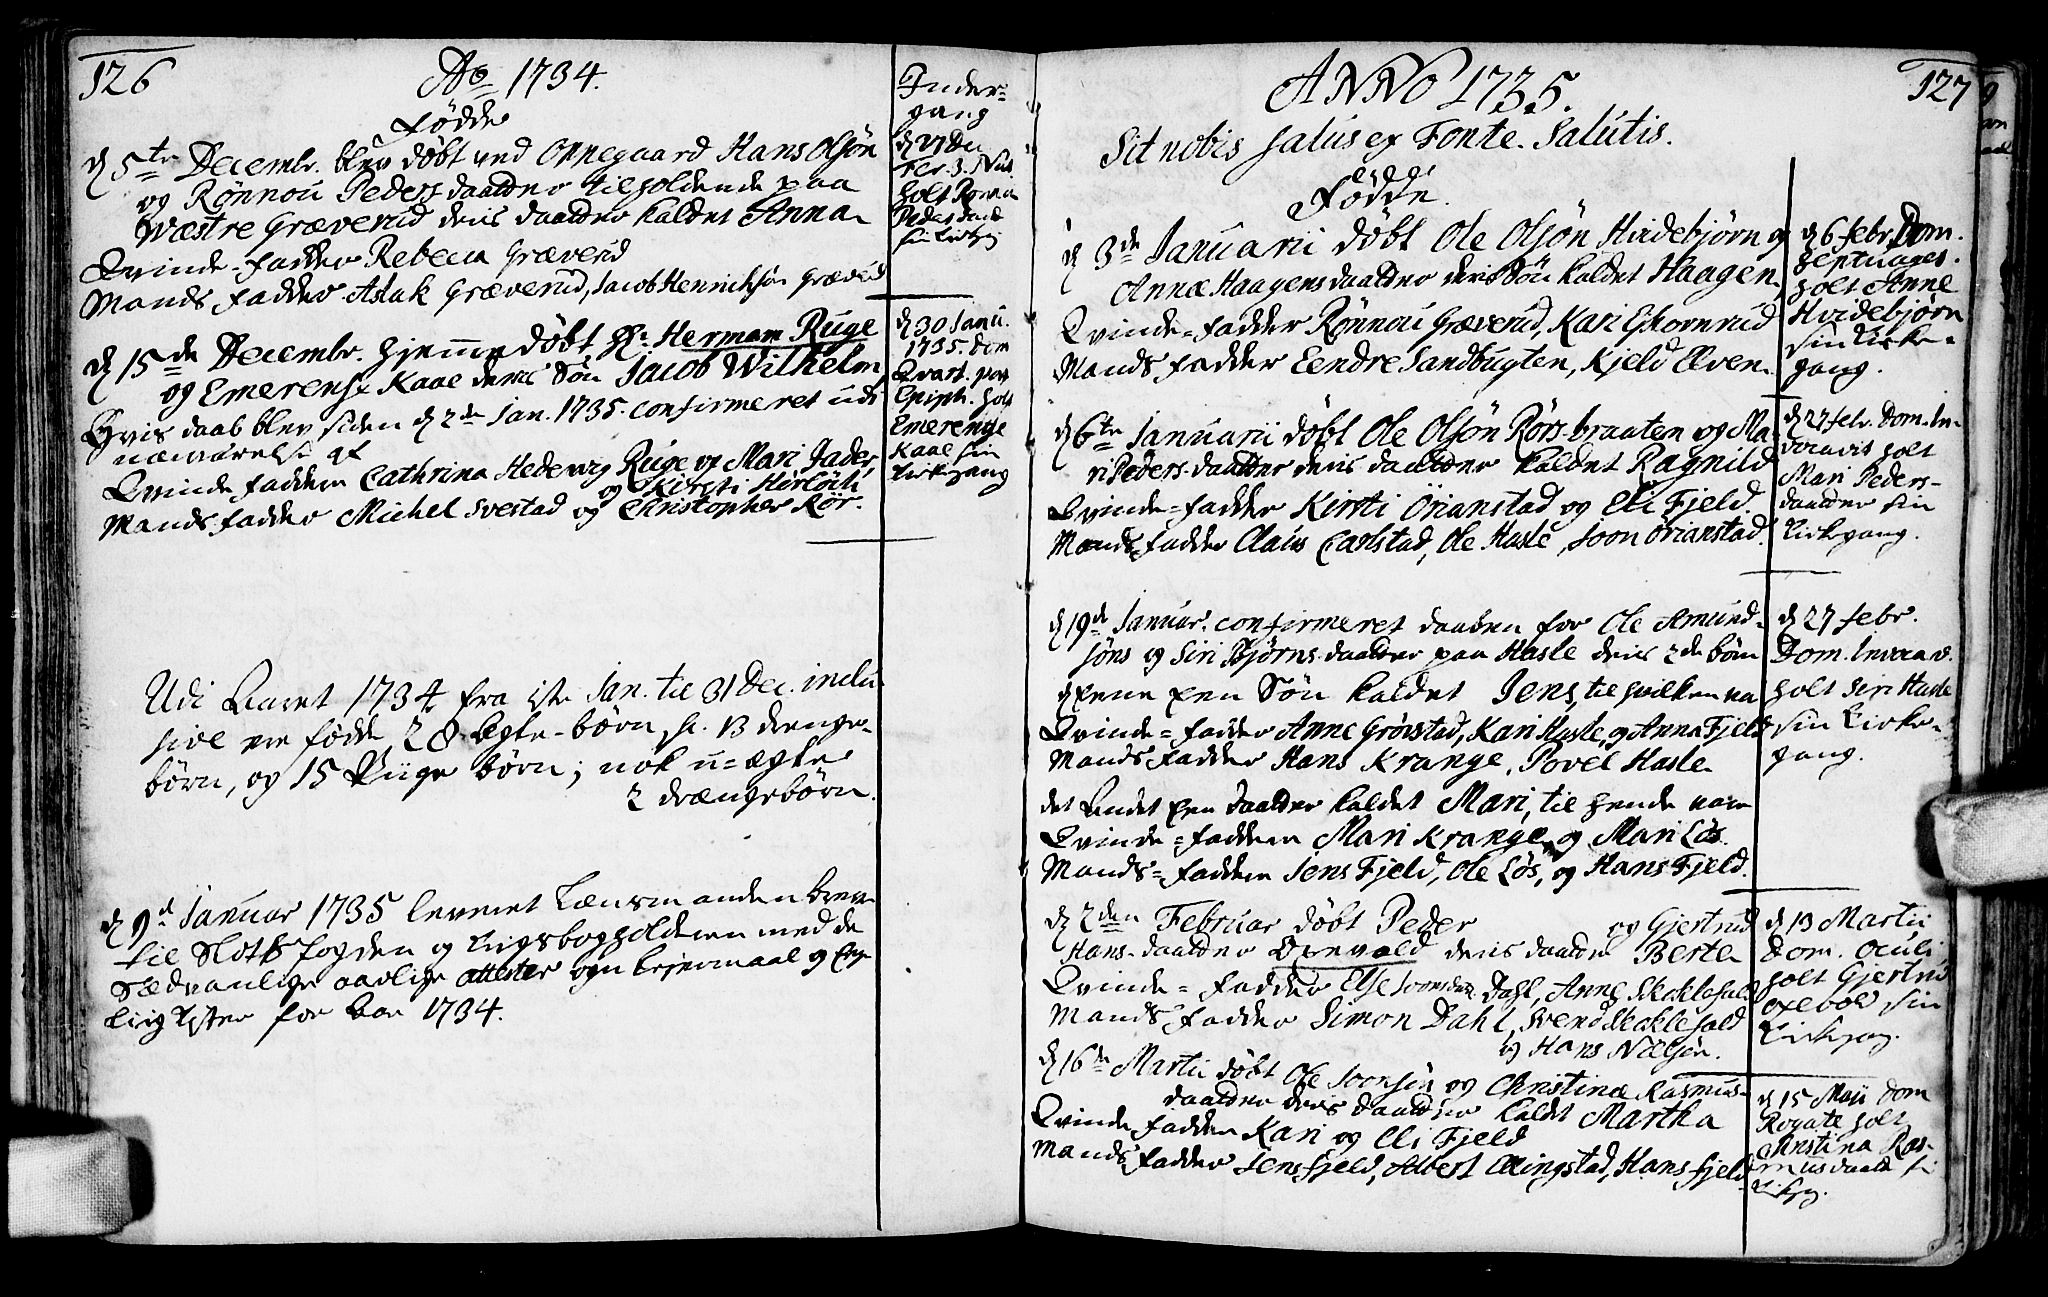 126
Ao 1734.
Fødde
d 5te Decembr. blev døbt ved Oppegaard Hans Olsøn
og Rønnou Peders daatter tilholdende paa
Væstre Græverud deris daatter kaldet Anna
Qvinde-fadder Rebecca Græverud
Mands fadder Aslak Græverud, Jacob Henrichsøn Græverud
d 15de Decembr. hjemme døbt Hr. Hermann Ruge
og Emerense Kaae deris Søn Jacob Wilhelm,
Hvis daab blev siden d 2de Jan. 1735. confirmeret udi
nærværelse af
Qvinde faddere Cathrina Hedewig Ruge og Mari Jader,
og Kirsti
Mands fadder Michel Svestad og Christopher Rør.
Udi Aaret 1734 fra 1ste Jan. til 31 Dec. inclu-
sive ere fødde 28 Egte-børn, sc. 13 drenge-
børn, og 15 Piige børn; nok u-ægte
2 drængebørn.
d 9d Januar 1735 leveret Lænsmanden brev
til Slotts fogden og Krigsbogholderen med de
Sædvanlige aarlige attester
for Aar 1734.
Inder-
gang
d 27 Dec
Fer. 3. Nat.
holt Rønnou
Peders daat
sin Kirkeg
d 30 Janu.
1735. Dom
Qvart. post
Epiph. holt
Emerense
Kaae sin
Kirkegang
127
ANNO 1735.
Sit nobis salus ex Fonte Salutis.
Fødde.
d 3de Januarii døbt Ole Olsøn Hvidebjørn og
Annæ Haagensdaatter deris Søn kaldet Haagen,
Qvinde-fadder Rønnou Græverud, Kari Ekornrud
Mands fadder Eendre Sandbugten, Kjeld Elven.
d 6te Januarii døbt Ole Olsøn Rørs-braaten og Ma-
ri Peders-daatter deris daatter kaldet Ragnild
Qvinde-fadder Kirsti Örianstad og Eli Fjeld.
Mands fadder Claus Carlstad, Ole Hasle, Joon Örianstad.
d 19d Januar. confirmeret daaben for Ole Amund-
søns og Siri Bjørns daatter paa Hasle deris 2de børn
den een Søn kaldet Jens, til hvilken va
Qvinde-fadder Anne Grøvstad, Kari Hasle, og Anna Fjeld
Mands fadder Hans Krange, Povel Hasle
det Andet een Daatter kaldet Mari, til hende vare
Qvinde-faddere Mari Krange og Mari Løs.
Mands-faddere Jens Fjeld, Ole Løs, og Hans Fjeld.
d 2den Februar døbt Peder og Gjertrud
Hans-daatter Oxevald deris daatter Berte
Qvinde-fadder Else Joonsdr Dahl, Anne Skoklefald
Mands fadder Simon Dahl, Svend Skoklefald
og Hans Nielsøn.
d 16de Martii døbt Ole Joonsøn og Christinæ Rasmus-
daatter deris daatter kaldet Martha
Qvinde faddere Kari og Eli Fjeld
Mands fadder Jens Fjeld, Albert Ellingstad, Hans Fjeld.
d 6 febr. Dom.
Septuages.
holt Anne
Hvidebjørn
sin Kirke-
gang.
d 27 febr. Dom. In-
vocavit holt
Mari Peders-
daatter sin
Kirkegang.
d 27 febr.
Dom. Invocav.
holt Siri Hasle
sin Kirke-
gang.
d 13 Martii
Dom. Oculi
holt Gjertrud
Oxevold sin
Kirkegang.
d 15 Maii Dom
Rogate holt
Christina Ras-
mus daatt si
Kirkeg.